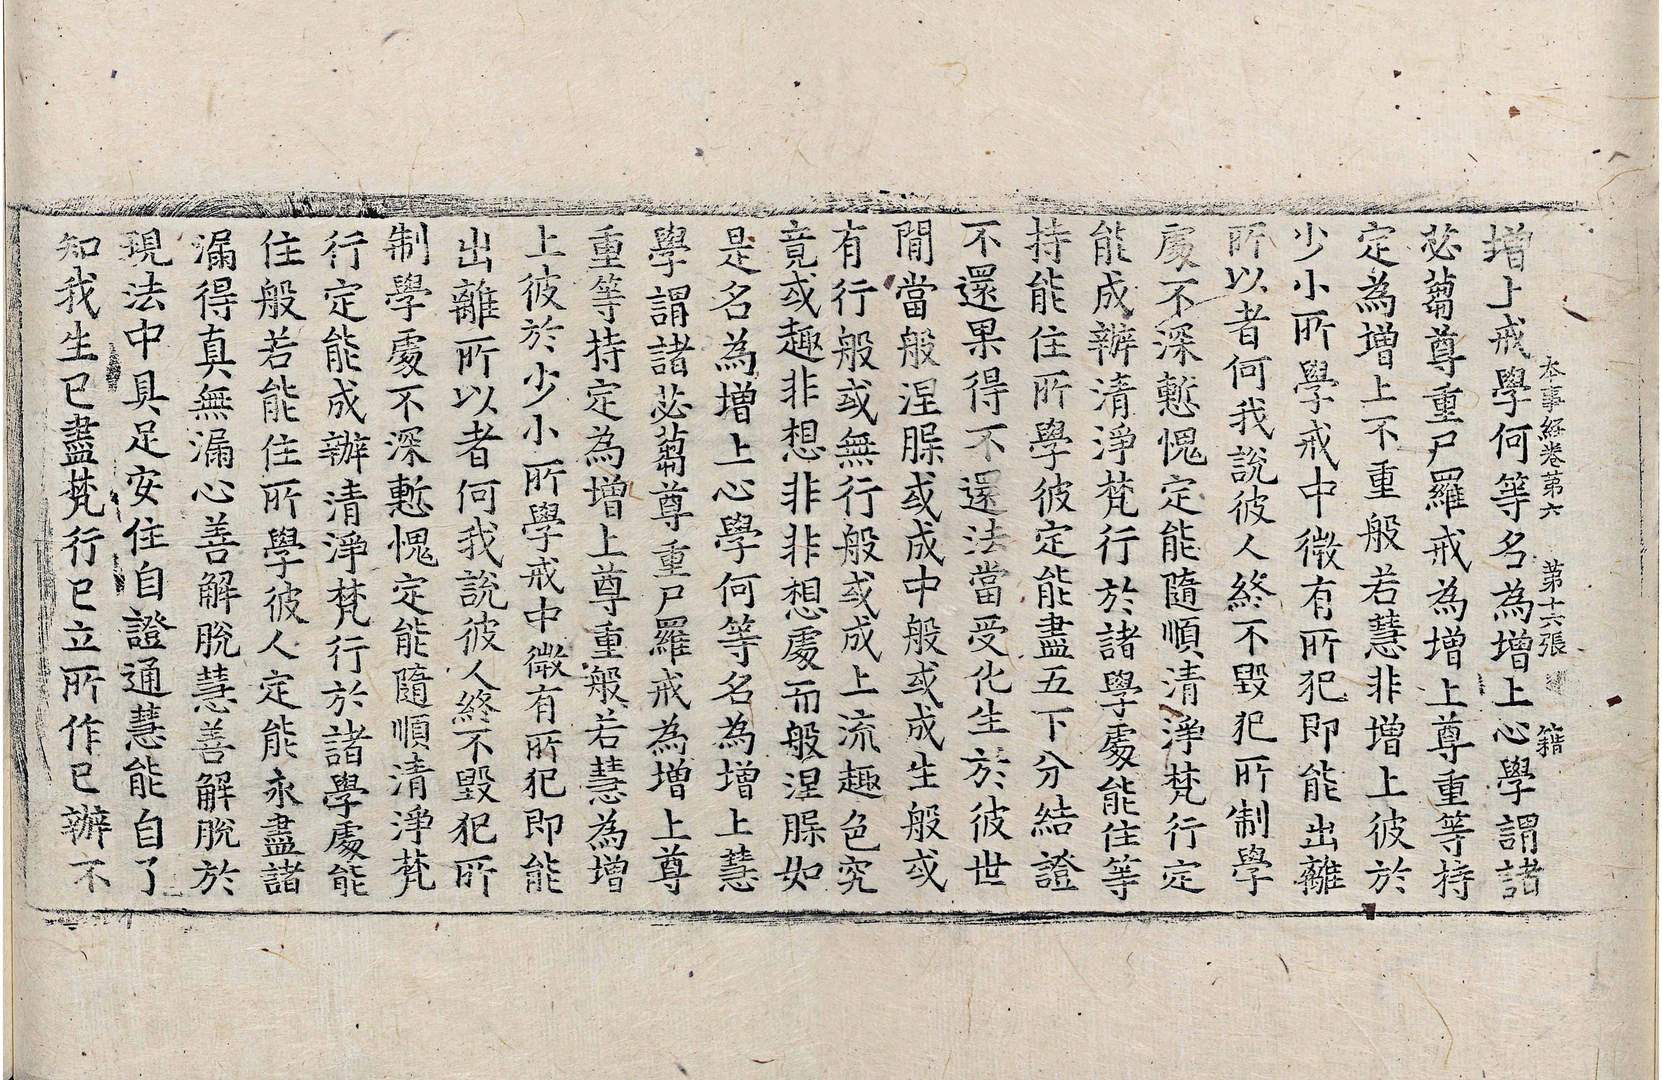 本事經卷第六 第十六張 籍
增上戒學何等名為增上心學謂諸
苾蒭尊重尸羅戒為增上尊重等持
定為增上不重般若慧非增上彼於
少小所學戒中微有所犯即能出離
所以者何我說彼人終不毀犯所制學
處不深慙愧定能隨順清淨梵行定
能成辦清淨梵行於諸學處能住等
持能住所學彼定能盡五下分結證
不還果得不還法當受化生於彼世
閒當般涅脲或成中般或成生般或
有行般或無行般或成上流趣色究
竟或趣非想非非想處而般涅脲如
是名為增上心學何等名為增上慧
學謂諸苾蒭尊重尸羅戒為增上尊
重等持定為增上尊重般若慧為增
上彼於少小所學戒中微有所犯即能
出離所以者何我說彼人終不毀犯所
制學處不深慙愧定能隨順清淨梵
行定能成辦清淨梵行於諸學處能
住般若能住所學彼人定能永盡諸
漏得真無漏心善解脫慧善解脫於
現法中具足安住自證通慧能自了
知我生已盡梵行已立所作已辦不